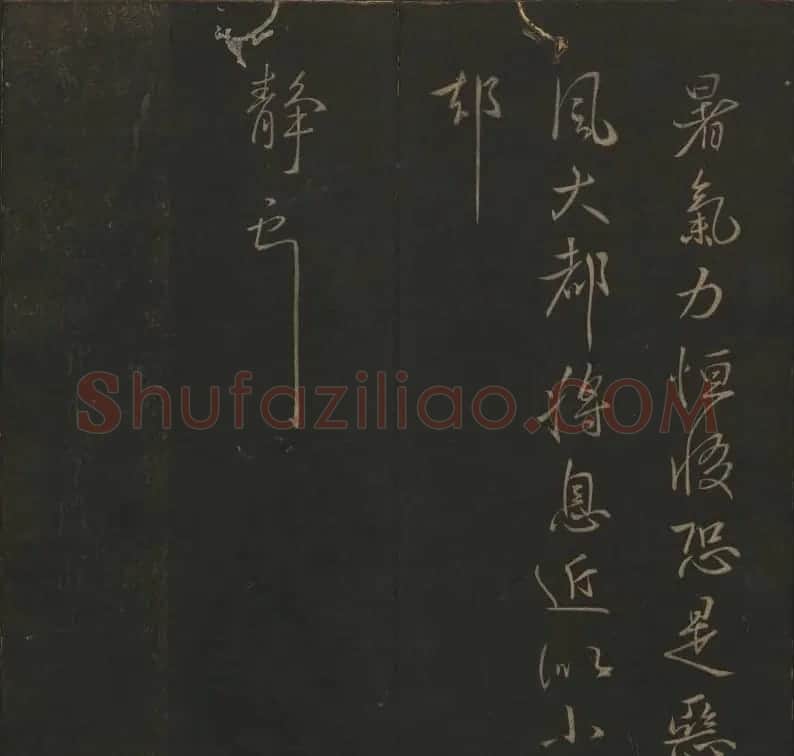 暑氣力恒惙恐是
風大都得息近以小
却
靜
Shufaziliao.COM